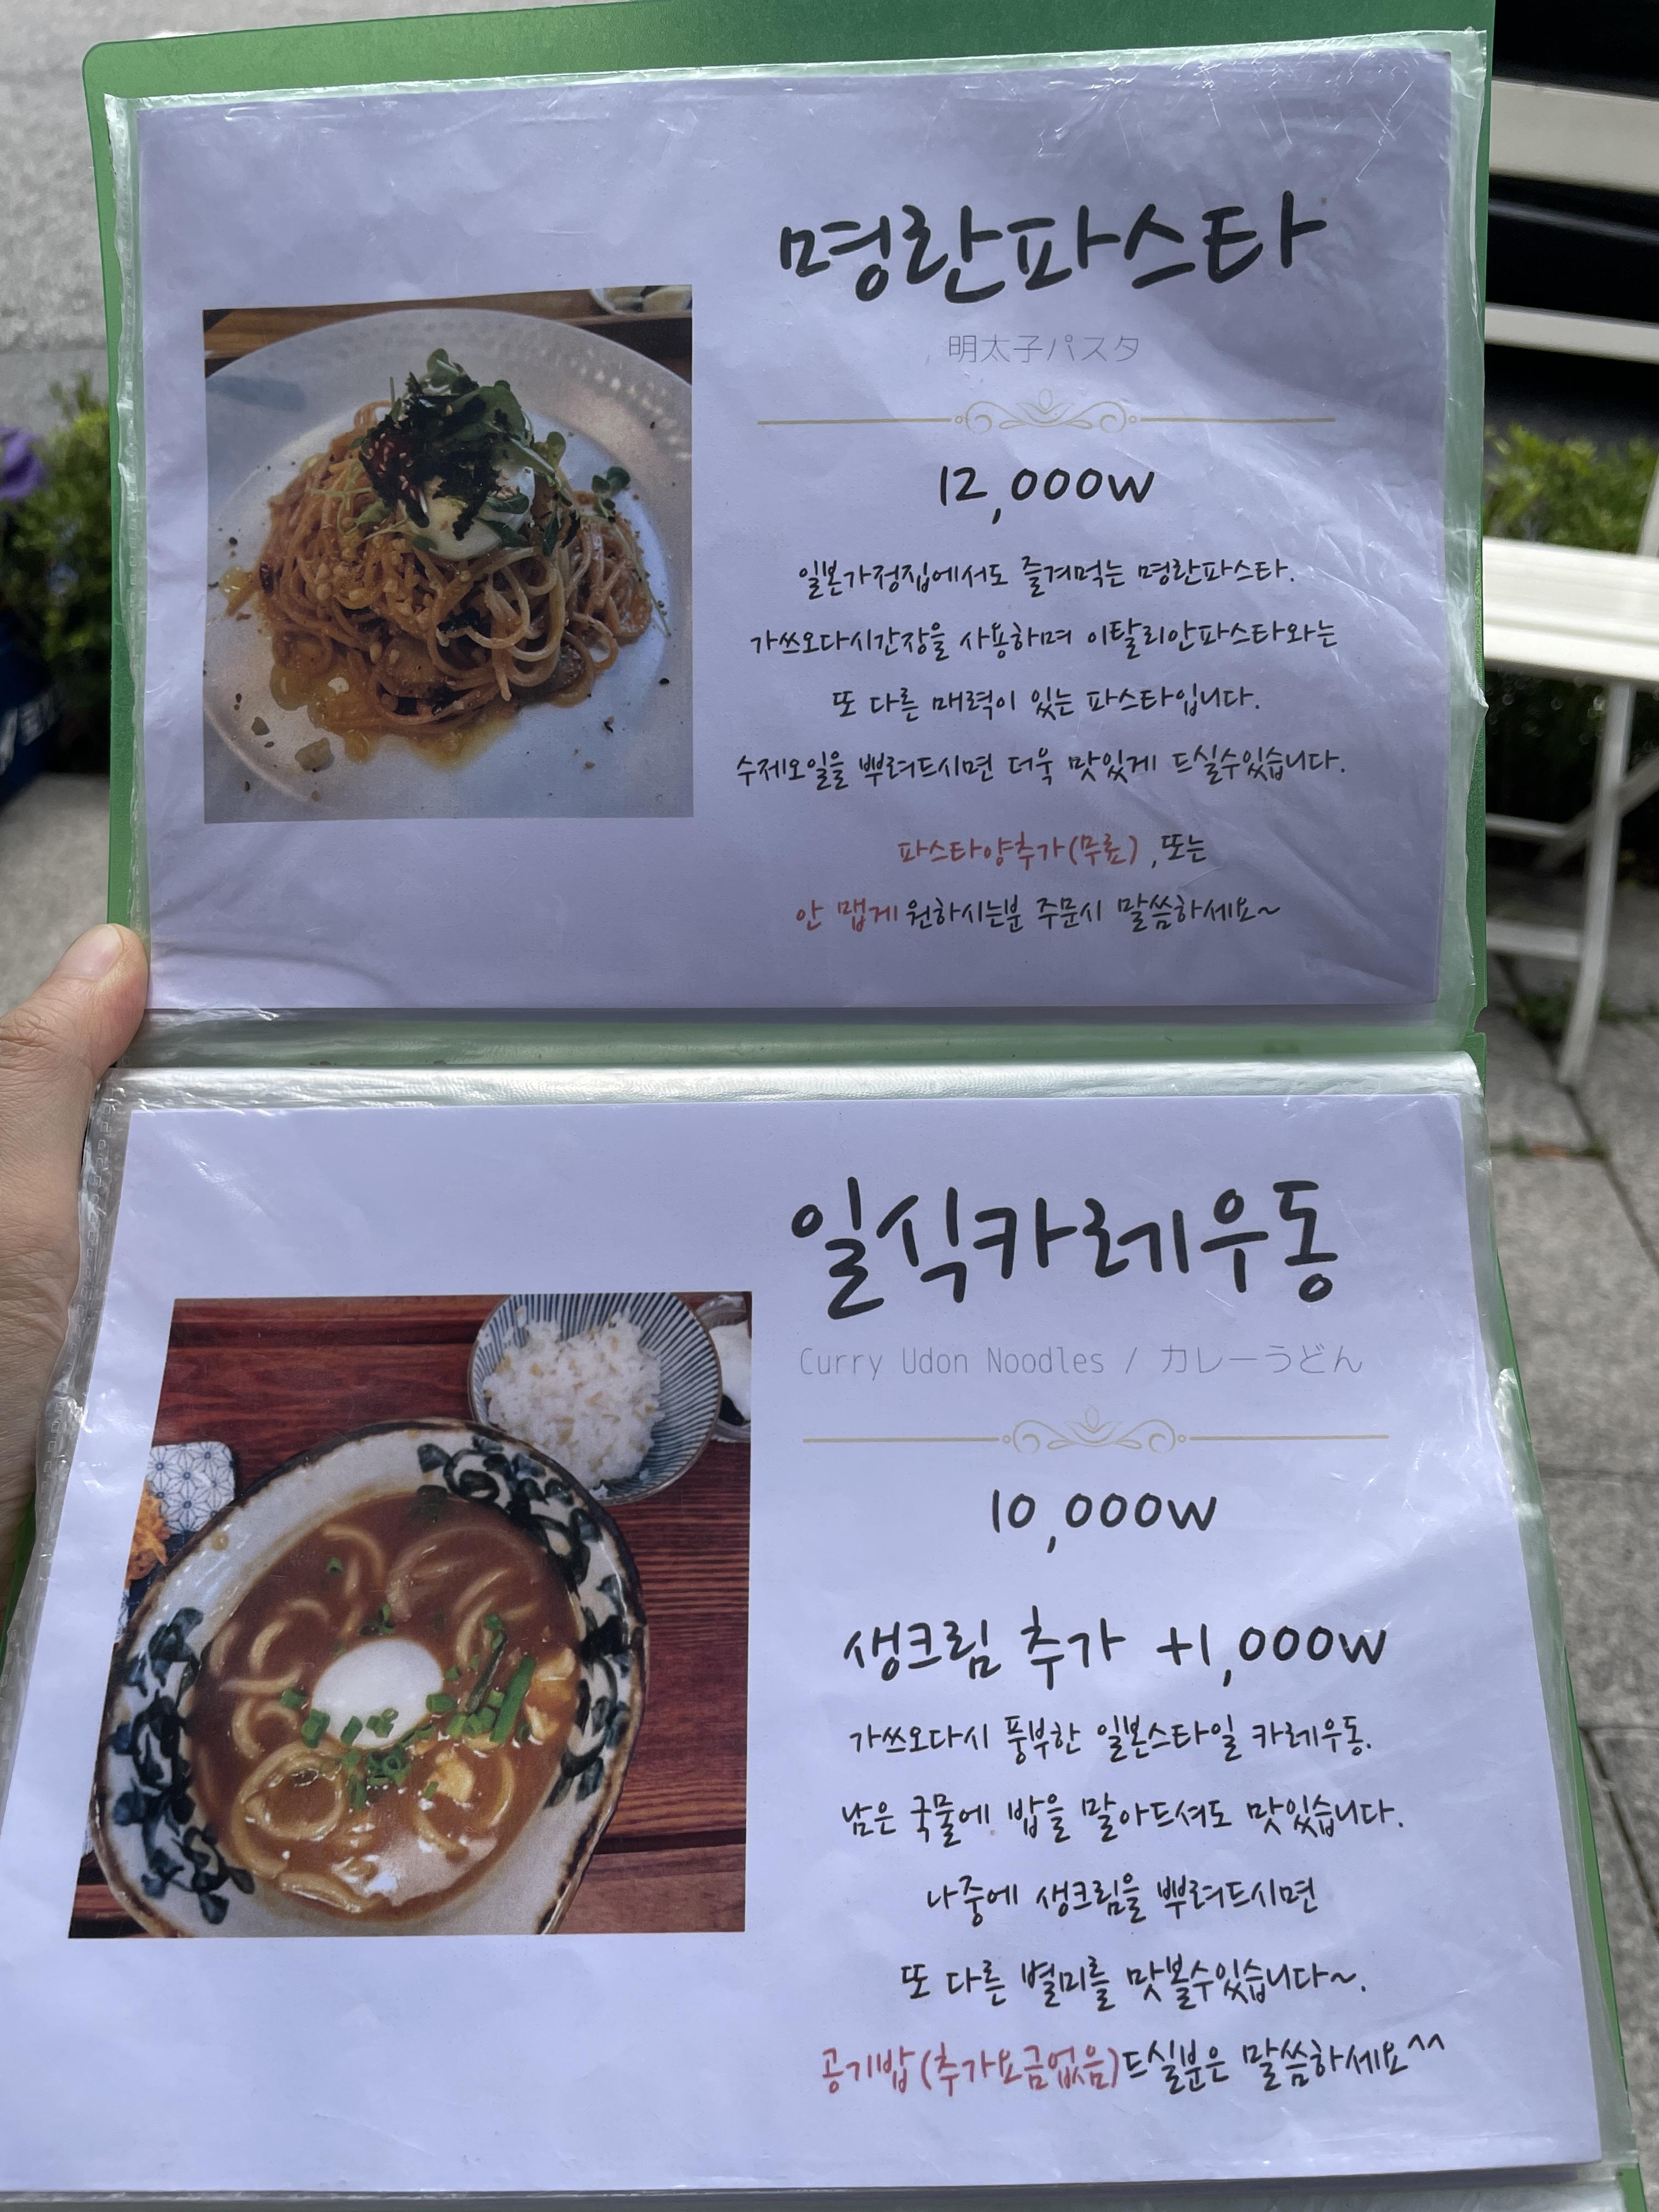 명란파스타
明太子パスタ
12,000w
일본가정집에서도 즐겨먹는 명란파스타.
가쓰오다시간장을 사용하며 이탈리안파스타와는
또 다른 매력이 있는 파스타입니다.
수제오일을 뿌려드시면 더욱 맛있게 드실수있습니다.
파스타양추가(무료) ,또는
안 맵게 원하시는분 주문시 말씀하세요~
일식카레우동
Curry Udon Noodles / カレーうどん
10,000w
생크림 추가 +1,000w
가쓰오다시 풍부한 일본스타일 카레우동.
남은 국물에 밥을 말아드셔도 맛있습니다.
나중에 생크림을 뿌려드시면
또 다른 별미를 맛볼수있습니다~.
공기밥(추가요금없음)드실분은 말씀하세요^^